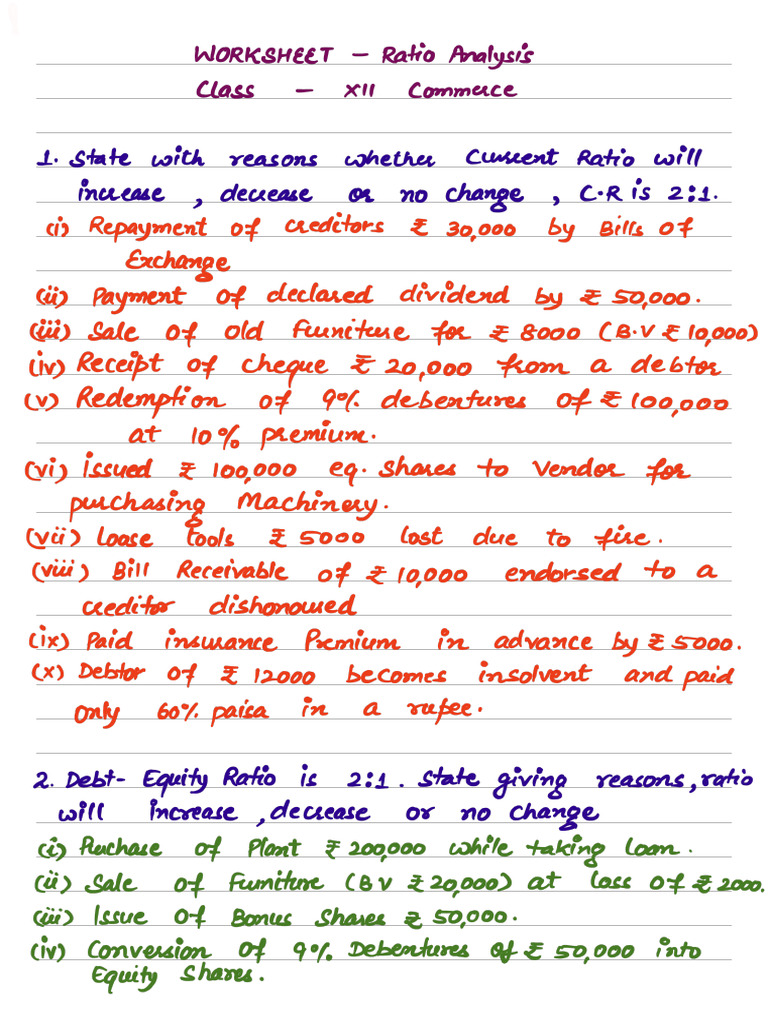 WORKSHEET - Ratio Analysis
Class - XII Commerce
1. State with reasons whether Current Ratio will
increase, decrease or no change, C.R is 2:1.
(i) Repayment of creditors ₹ 30,000 by Bills of
Exchange
(ii) Payment of declared dividend by ₹ 50,000.
(iii) Sale of old Furniture for ₹ 8000 (B.V ₹ 10,000)
(iv) Receipt of cheque ₹ 20,000 from a debtor
(v) Redemption of 9% debentures of ₹ 100,000
at 10% premium.
(vi) issued ₹ 100,000 eq. shares to Vendor for
purchasing Machinery.
(vii) Loase tools ₹ 5000 lost due to fire.
(viii) Bill Receivable of ₹ 10,000 endorsed to a
creditor dishonoured
(ix) Paid insurance Premium in advance by ₹ 5000.
(x) Debtor of ₹ 12000 becomes insolvent and paid
only 60% paisa in a rupee.
2. Debt-Equity Ratio is 2:1. State giving reasons, ratio
will increase, decrease or no change
(i) Puchase of Plant ₹ 200,000 while taking loan.
(ii) Sale of Furniture (B V ₹ 20,000) at loss of ₹ 2000.
(iii) Issue of Bonus Shares ₹ 50,000.
(iv) Conversion of 9% Debentures of ₹ 50,000 into
Equity Shares.